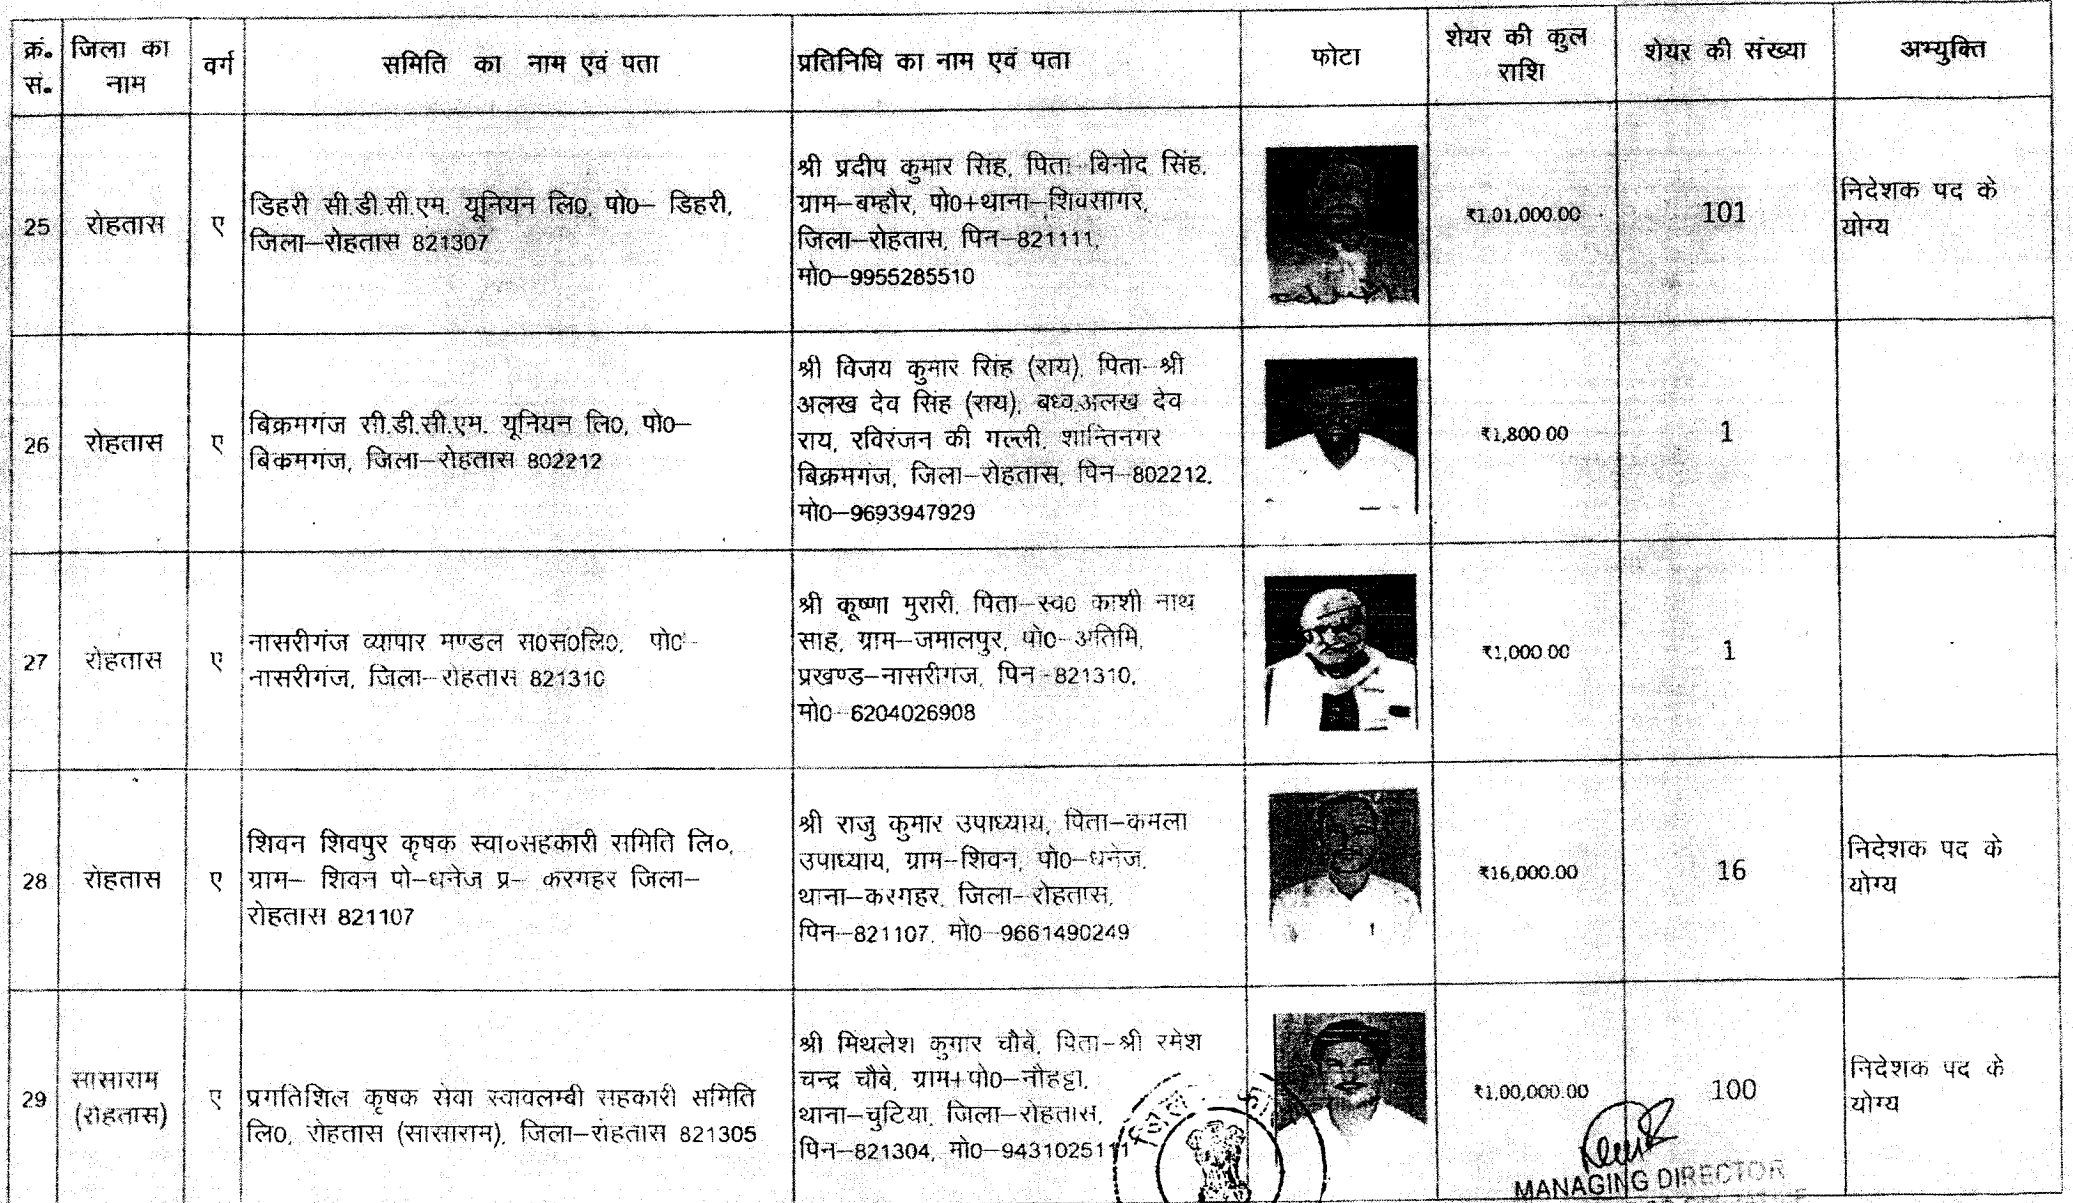 क्रं. सं. जिला का नाम वर्ग समिति का नाम एवं पता प्रतिनिधि का नाम एवं पता फोटा शेयर की कुल राशि शेयर की संख्या अभ्युक्ति
25 रोहतास ए
डिहरी सी.डी.सी.एम. यूनियन लि0, पो0– डिहरी,
जिला–रोहतास 821307
श्री प्रदीप कुमार सिंह, पिता–बिनोद सिंह,
ग्राम–बम्हौर, पो0+थाना–शिवसागर,
जिला–रोहतास, पिन–821111,
मो0–9955285510
₹1,01,000.00 101
निदेशक पद के
योग्य
26 रोहतास ए
बिक्रमगंज सी.डी.सी.एम. यूनियन लि0, पो0–
बिकमगंज, जिला–रोहतास 802212
श्री विजय कुमार सिंह (राय), पिता–श्री
अलख देव सिंह (राय), बध्व.अलख देव
राय, रविरंजन की गल्ली, शान्तिनगर
बिक्रमगंज, जिला–रोहतास, पिन–802212,
मो0–9693947929
₹1,800.00 1
27 रोहतास ए
नासरीगंज व्यापार मण्डल स0स0लि0, पो0–
नासरीगंज, जिला–रोहतास 821310
श्री कृष्णा मुरारी, पिता–स्व0 काशी नाथ
साह, ग्राम–जमालपुर, पो0–अतिमि,
प्रखण्ड–नासरीगंज, पिन–821310,
मो0–6204026908
₹1,000.00 1
28 रोहतास ए
शिवन शिवपुर कृषक स्वा०सहकारी समिति लि०,
ग्राम– शिवन पो–धनेज प्र– करगहर जिला–
रोहतास 821107
श्री राजु कुमार उपाध्याय, पिता–कमला
उपाध्याय, ग्राम–शिवन, पो0–धनेज,
थाना–करगहर, जिला–रोहतास,
पिन–821107, मो0–9661490249
₹16,000.00 16
निदेशक पद के
योग्य
29 सासाराम (रोहतास) ए
प्रगतिशिल कृषक सेवा स्वावलम्बी सहकारी समिति
लि0, रोहतास (सासाराम), जिला–रोहतास 821305
श्री मिथलेश कुमार चौबे, पिता–श्री रमेश
चन्द्र चौबे, ग्राम+पो0–नौहट्टा,
थाना–चुटिया, जिला–रोहतास,
पिन–821304, मो0–9431025111
₹1,00,000.00 100
निदेशक पद के
योग्य
MANAGING DIRECTOR